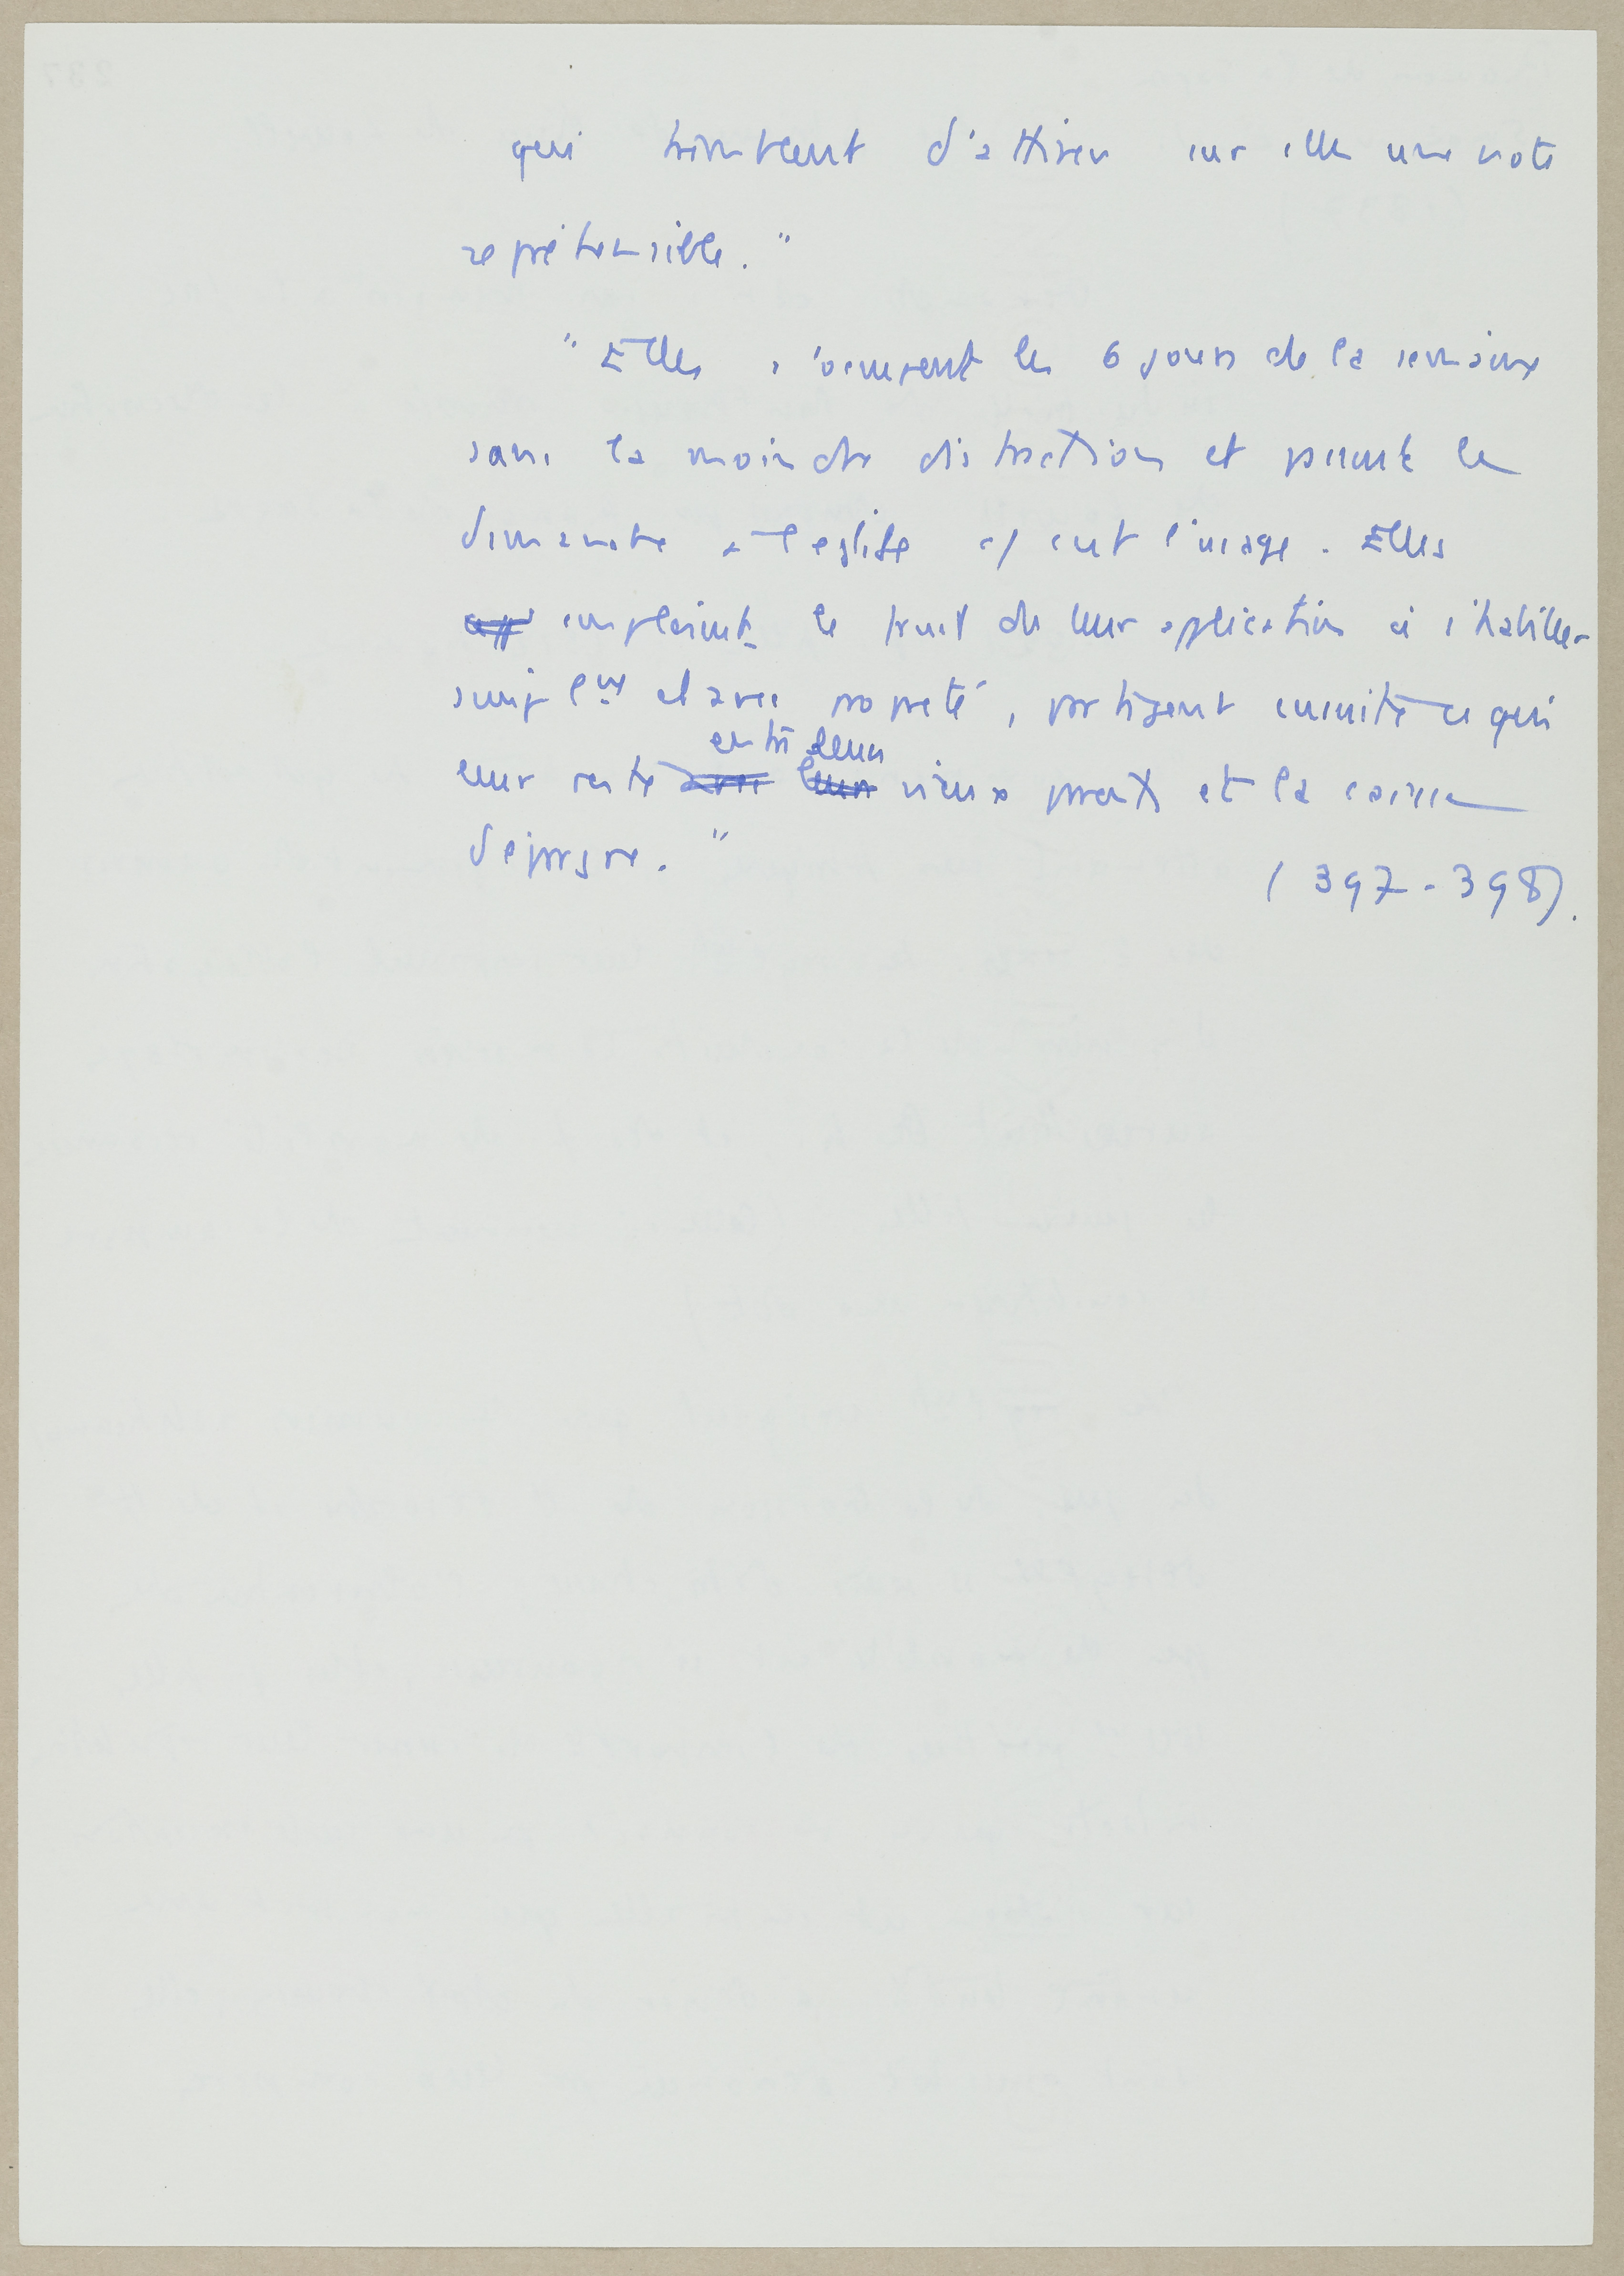 qui tremblent d'attirer sur elles une note
repréhensible."
"Elles s'occupent les 6 jours de la semaine
sans la moindre distraction et passent le
dimanche à l'église c/ c'est l'usage. Elles
emploient le fruit de leur application à s'habiller
simplmt et avec propreté, partagent ensuite ce qui
leur reste entre leurs vieux parents et la caisse
d'épargne."
(397-398).